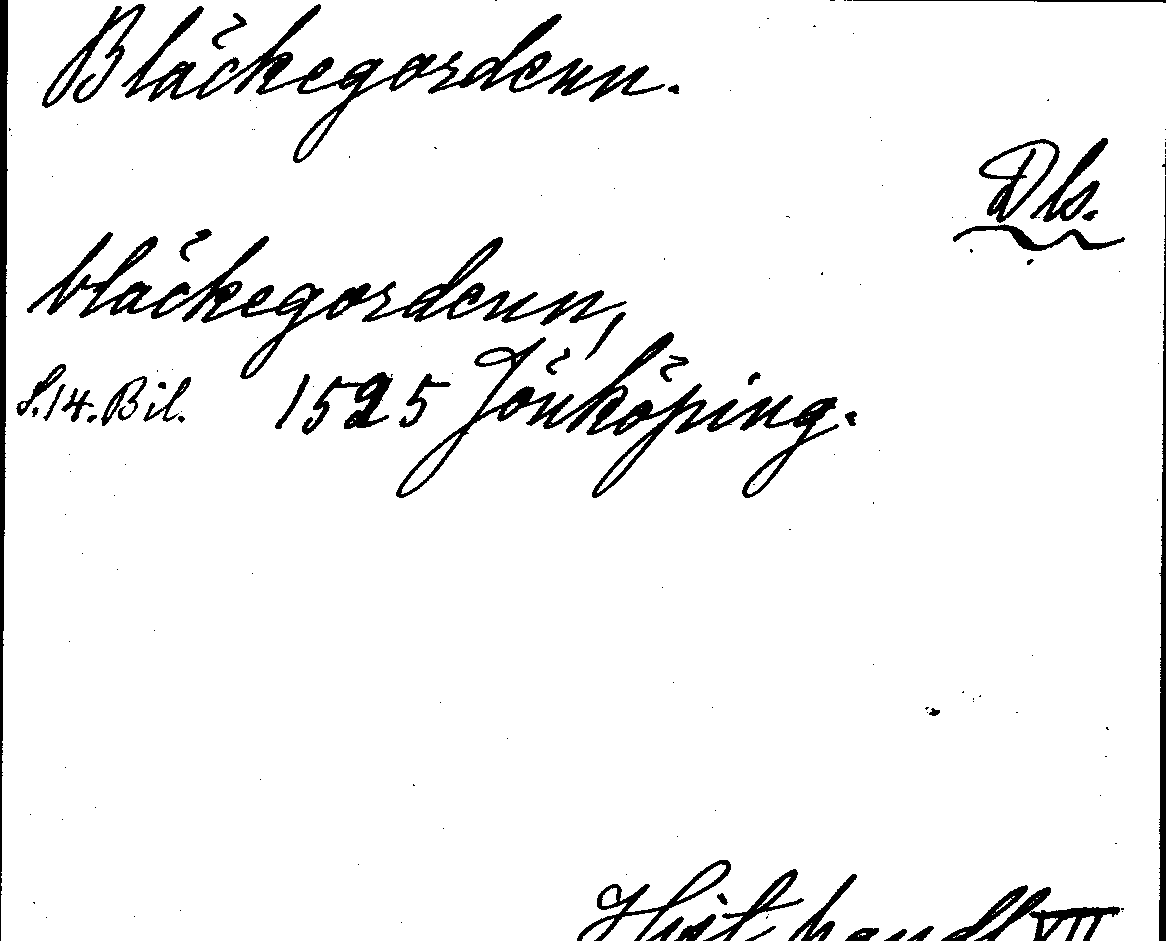 Bläckegordenn.
Dls.
bläckegordenn,
S.14.Bil. 1525 Jönköping.
Hist. handl VII